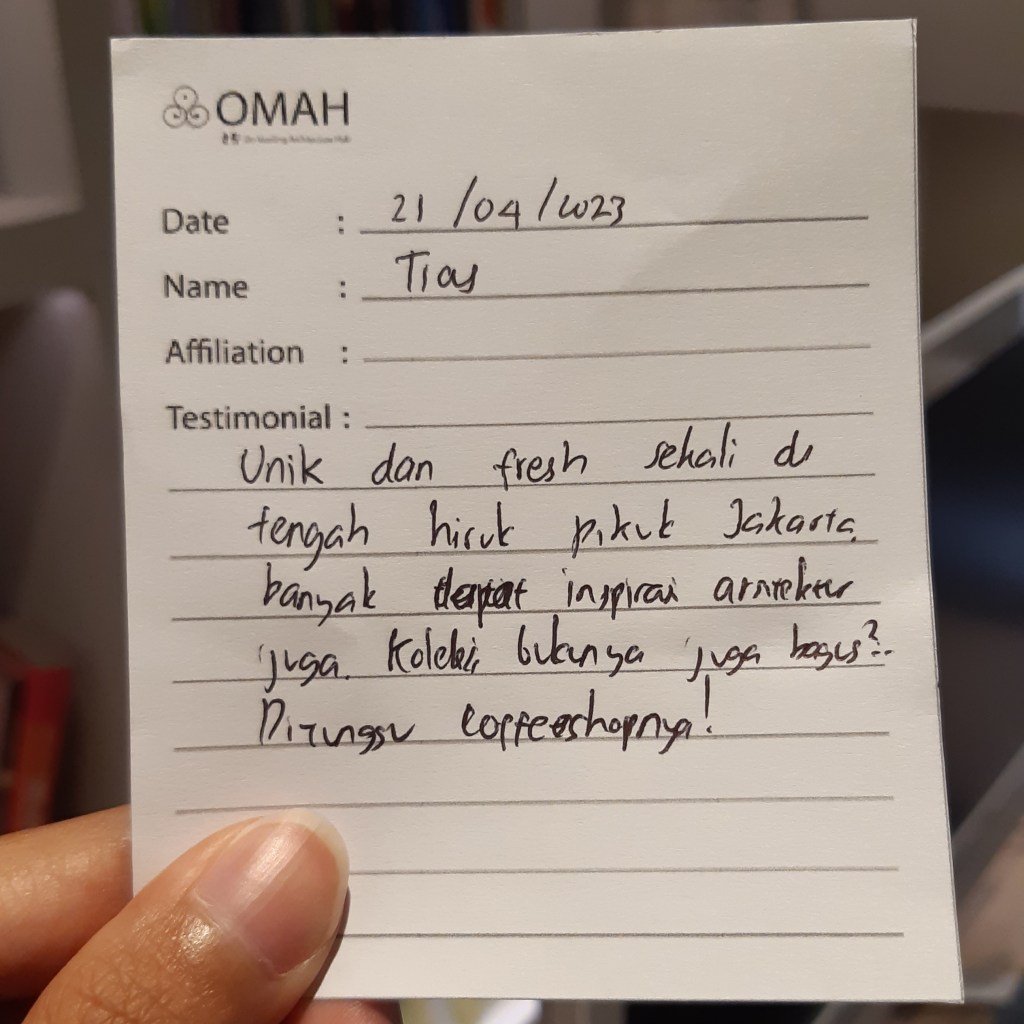 OMAH
Date : 21/04/2023
Name : Tias
Affiliation :
Testimonial :
Unik dan fresh sekali di
tengah hiruk pikuk Jakarta.
banyak dapat inspirasi arsitektur
juga. Koleksi bukunya juga bagus2.
Ditunggu coffeeshopnya!